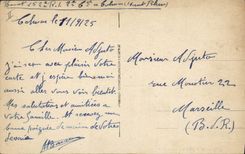 Colmar le 11/9/25
Cher Monsieur Adjuto
J'ai reçu avec plaisir votre
carte et j'espère bien moi
aussi aller vous voir bientôt.
Mes salutations et amitiés a
votre famille. Et recevez une
bonne poignée de mains de votre
Monsieur Adjuto
rue Moutier 22
Marseille
(B.d.R.)